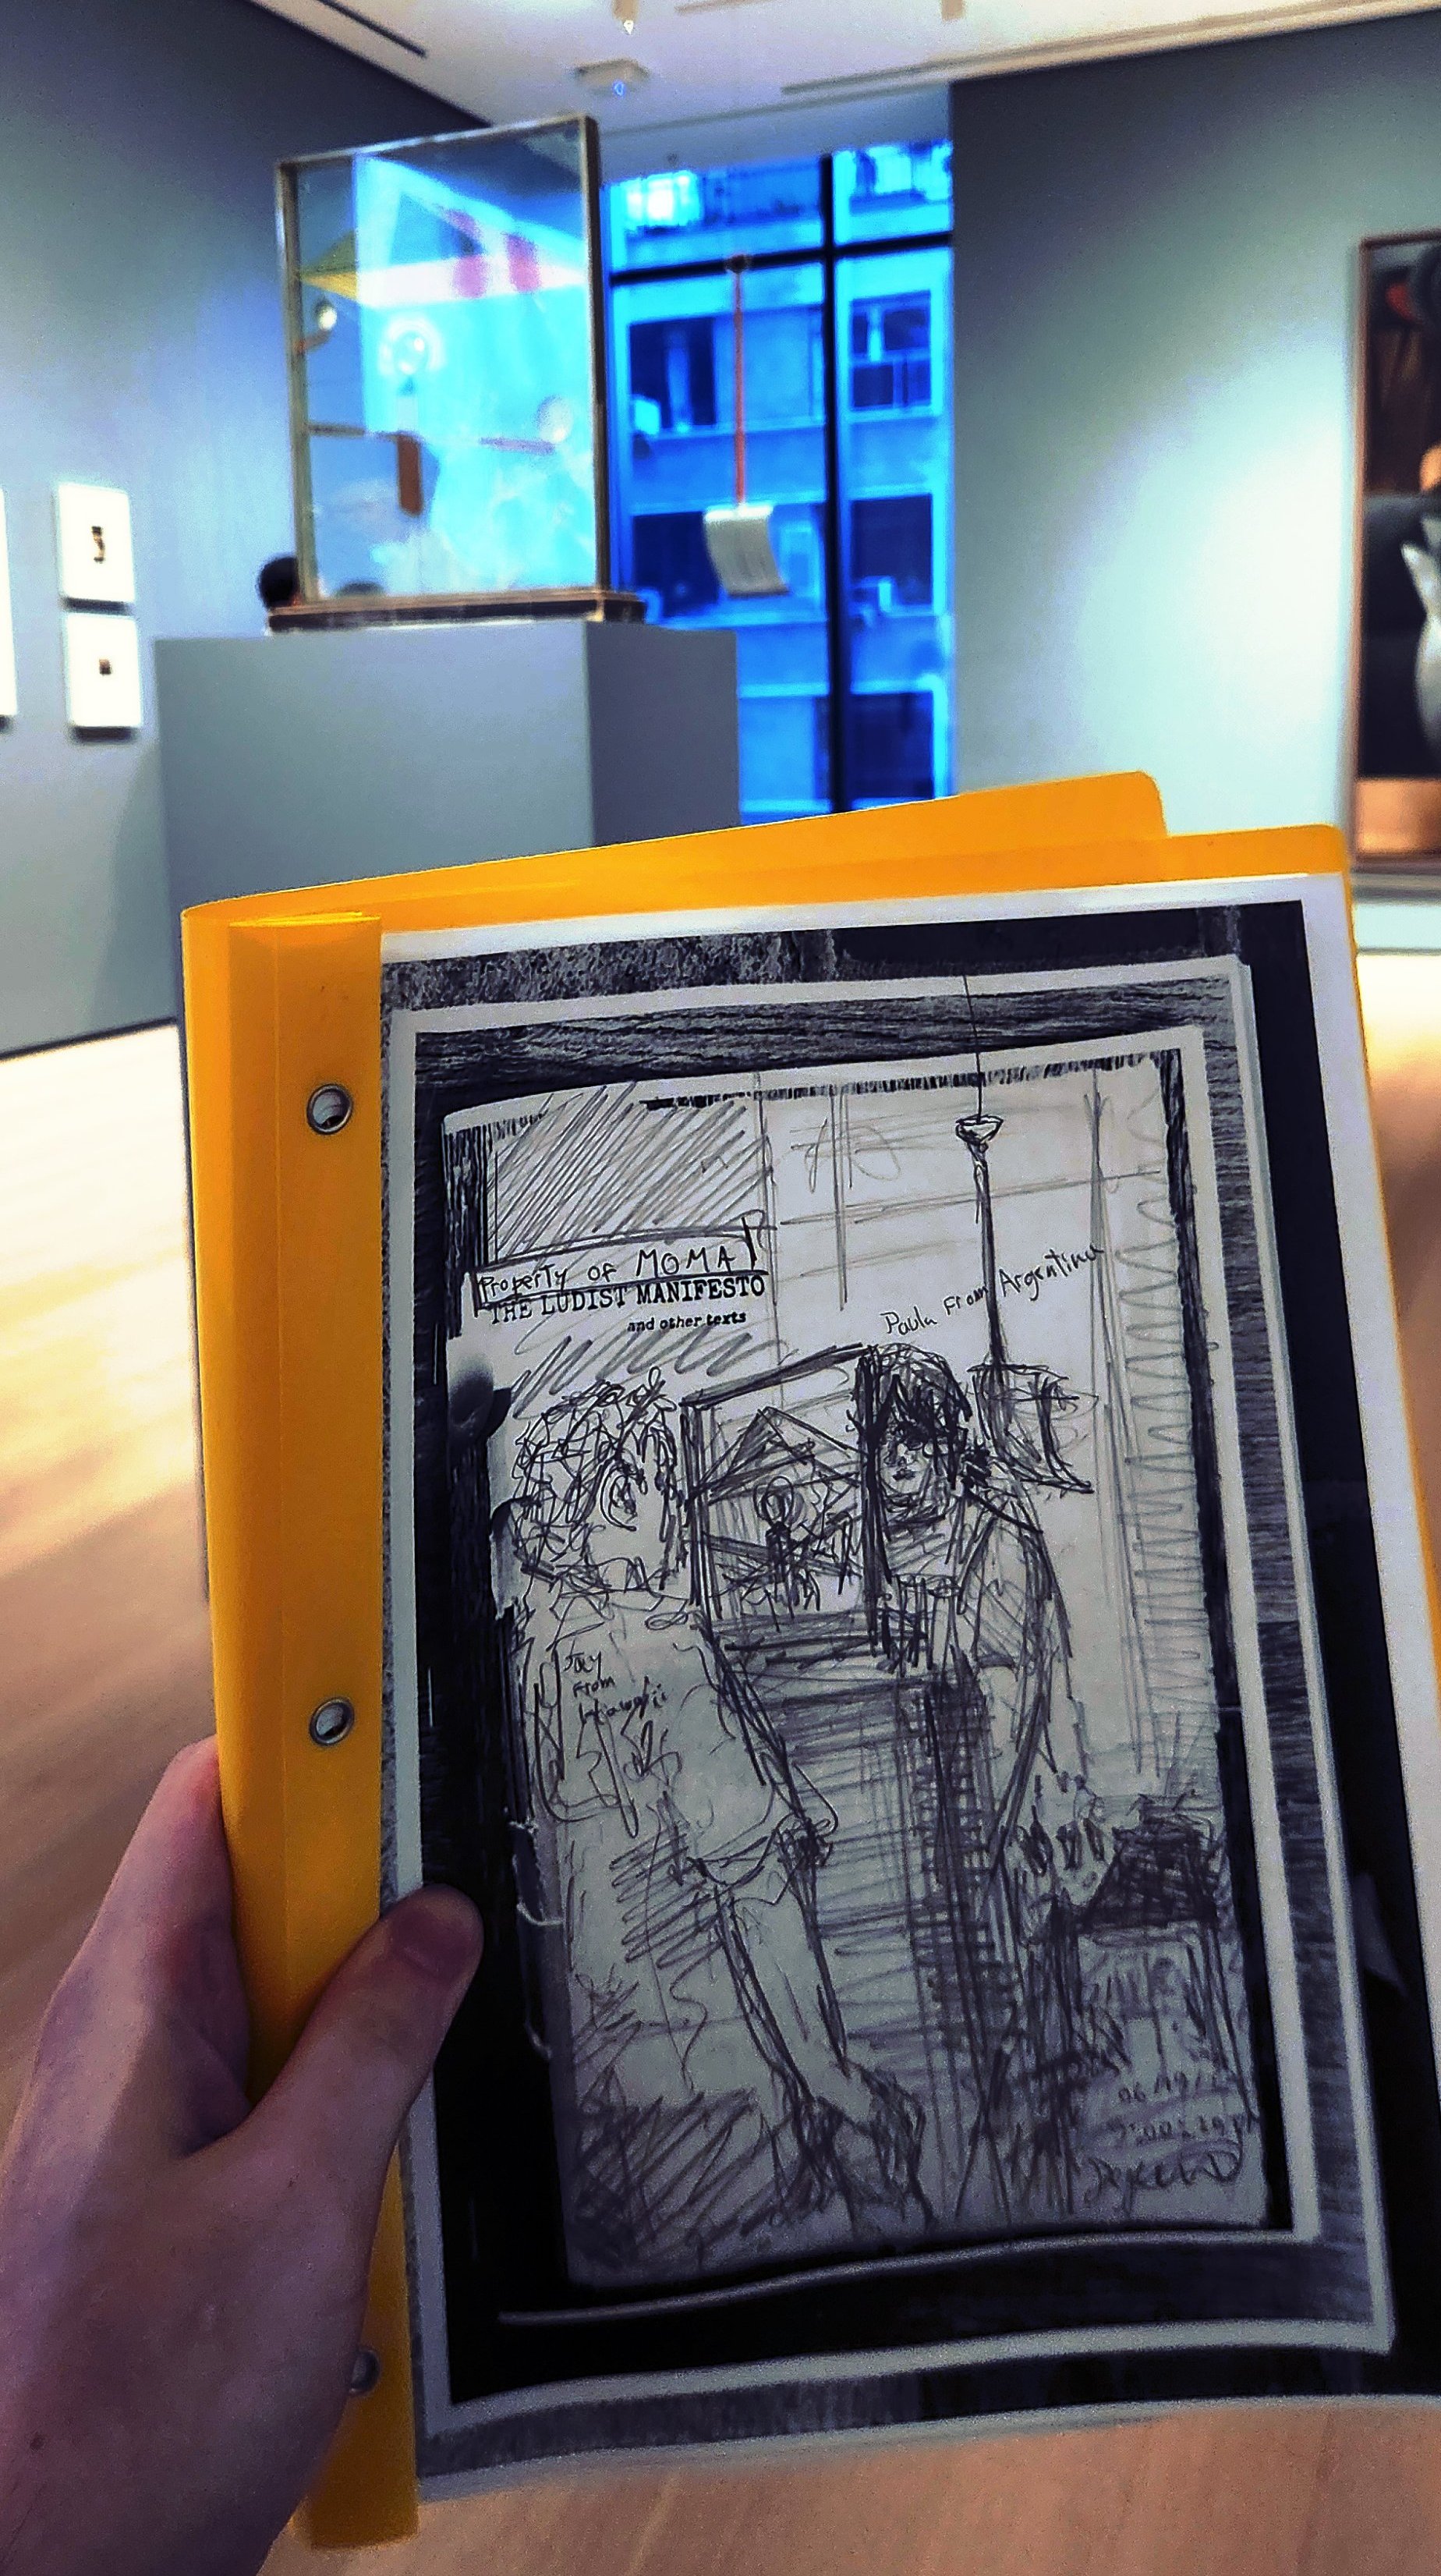 Property of MOMA
THE LUDIST MANIFESTO
and other texts
Paula From Argentina
Jay
From
Hawaii